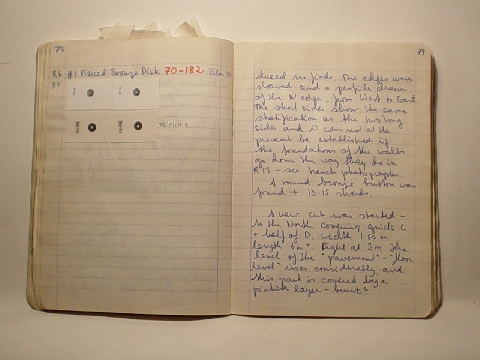 78
R6 #1 Pierced Bronze Disk 70-182 Film
BV
79
duced no finds. The edges were
and a profile drawn
of the N edge, from West to East
The short sides show the same
stratification as the two long
sides and it can not at the
present be established if
the foundations of the walls
go down the way they do in
R13 - see trench photographs.
A round bronze button was
found + 13-15 sherds.
A new cut was started -
to the North covering grids C
+ half of D, width 1.50 m
length 5 m. Right at 3 m the
level of the "pavement" - "floor
level" rises considerably and
this part is covered by a
pinkish layer - burnt?